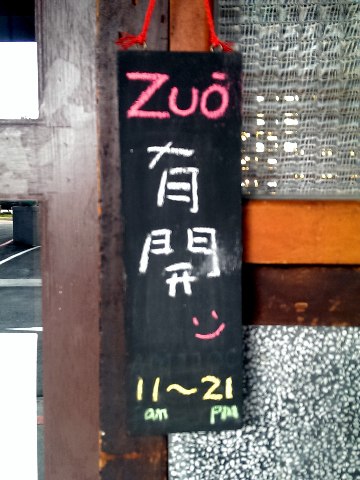 ZUò
有開
11～21
am pm